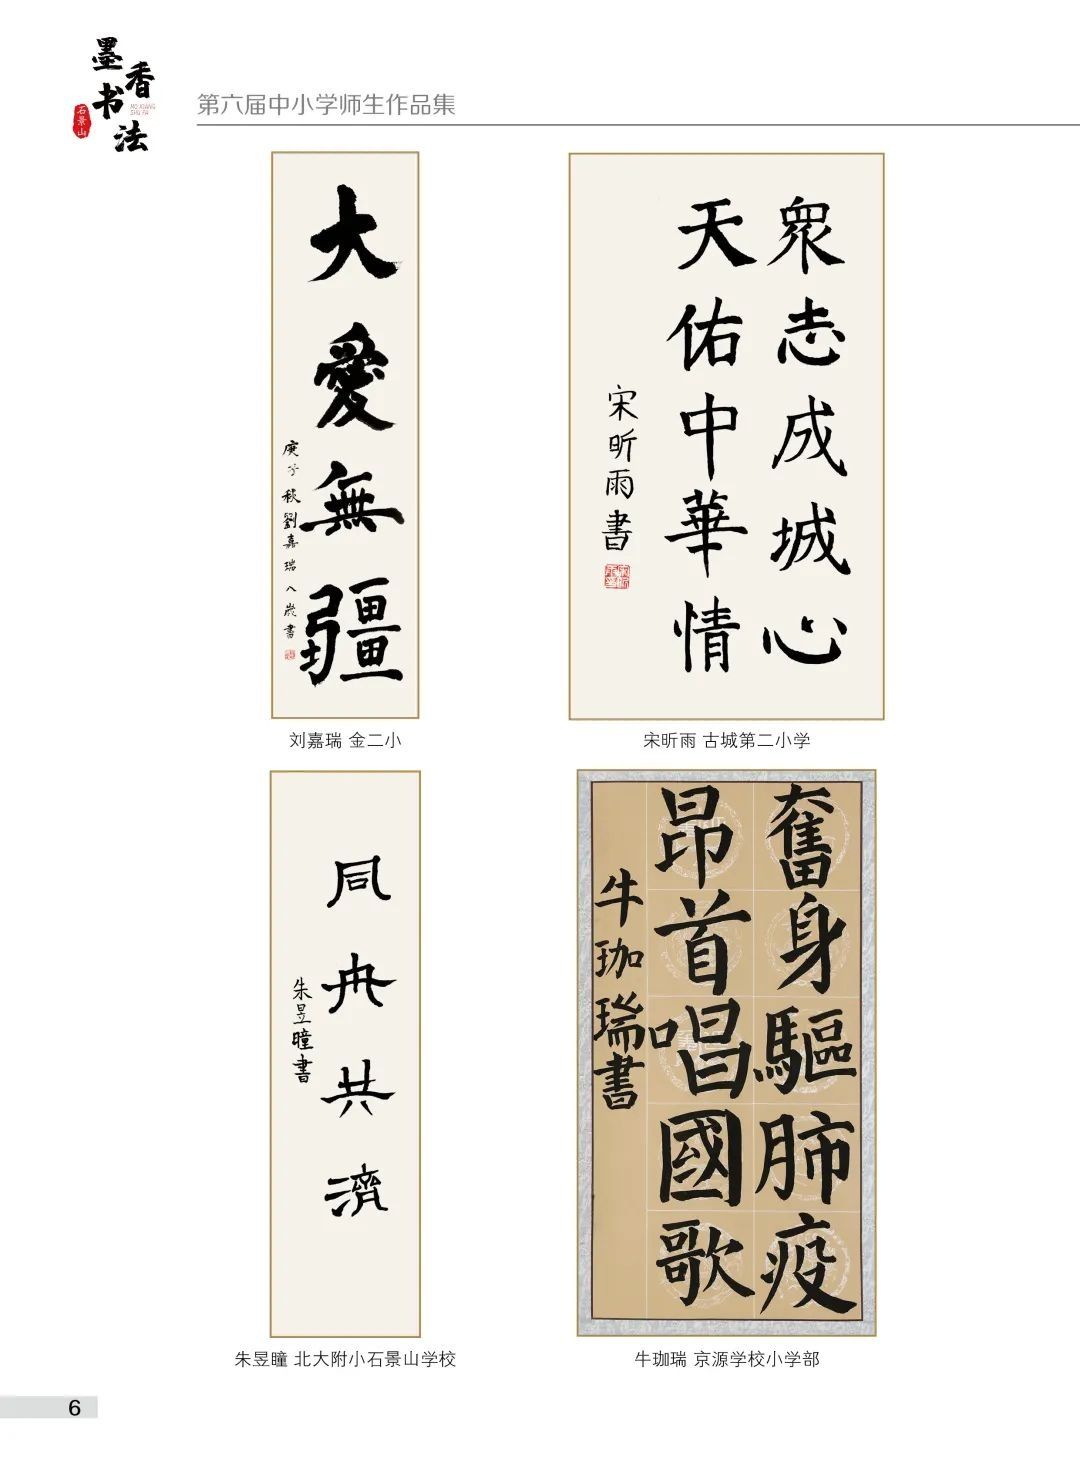 墨香书法
MO XIANG
SHU FA
石景山
第六届中小学师生作品集
大愛無疆
庚子秋劉嘉瑞八歲書
刘嘉瑞 金二小
衆志成城心
天佑中華情
宋昕雨書
宋昕雨 古城第二小学
同舟共濟
朱昱曈書
朱昱瞳 北大附小石景山学校
奮身驅肺疫
昂首唱國歌
牛珈瑞書
牛珈瑞 京源学校小学部
6